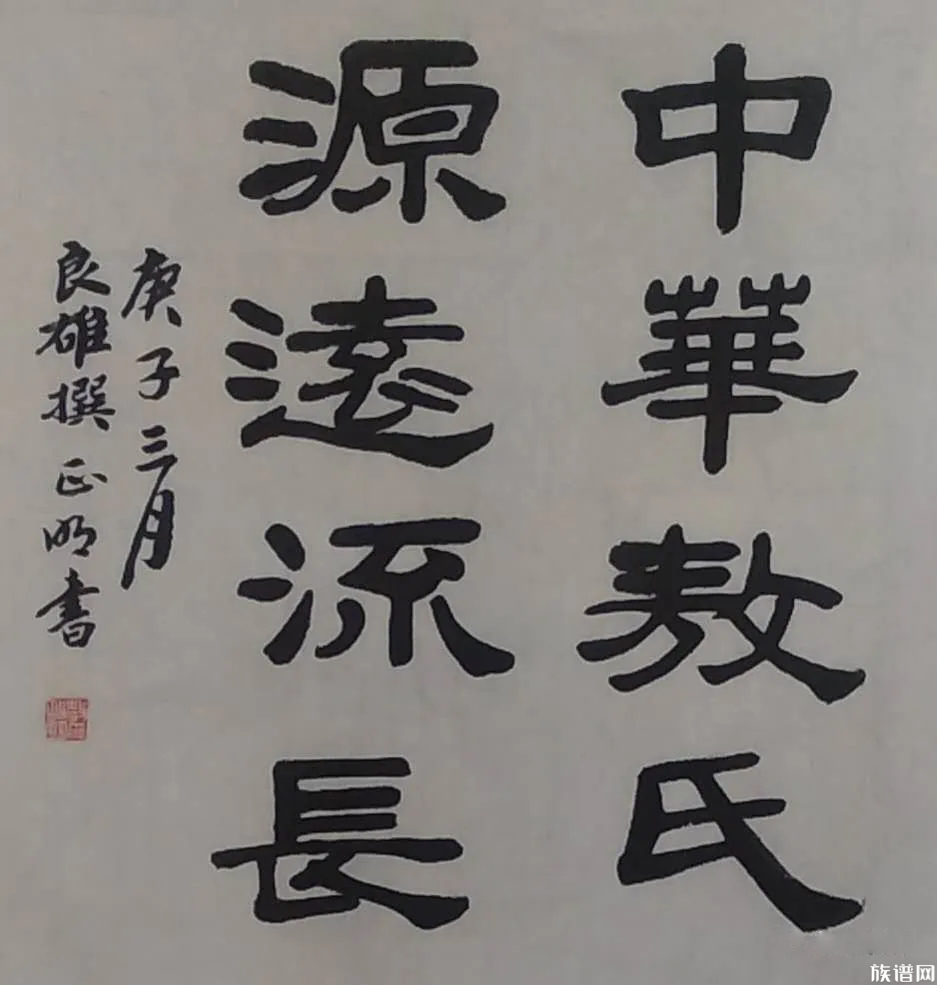 中華敖氏
源遠流長
庚子三月
良雄撰正明書
族谱网